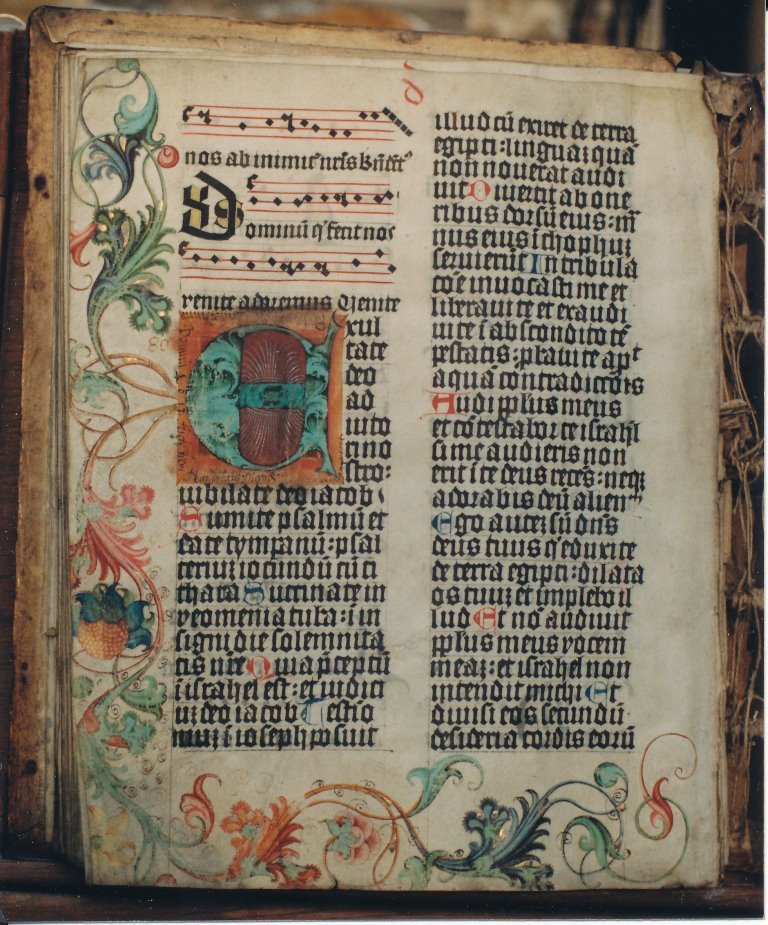 nos ab inimic̄ nr̄is Bn̄dc̄t
Dominū q̄ fecit nos
venite adoremus Venite
Exul
tate
deo
ad
iuto
ri no
stro:
iubilate deo iacob
Sumite psalmū et
date tympanū: psal
teriuʒ iocundū cū ci
thara Buccinate in
neomenia tuba: i in
signi die solemnita
tis vr̄e Quia p̄ceptū
ī israhel est: et iudici
uʒ deo iacob Testio
niuʒ ī ioseph posuit
illud cū exiret de terra
egipti: linguaʒ quā
non noverat audi
vit Divertit ab one
ribus dorsū eius: m̄
nus eius ī chophīuʒ
servierūt In tribula
cōe invocasti me et
liberavi te et exaudi
vi te ī abscondito tē
pestatis: p̄bavi te ap̄t
aquā contradictōis
Audi pp̄lus meus
et cōtestabor te israhl̄
si me audieris non
erit ī te deus recēs: neqʒ
adorabis deū alienū
Ego auteʒ sū dn̄s
deus tuus q̄ eduxi te
de terra egipti: dilata
os tuuʒ et implebo il
lud Et nō audivit
pp̄lus meus vocem
meaʒ: et israhel non
intendit michi Et
dimisi eos secundū
desideria cordis eorū